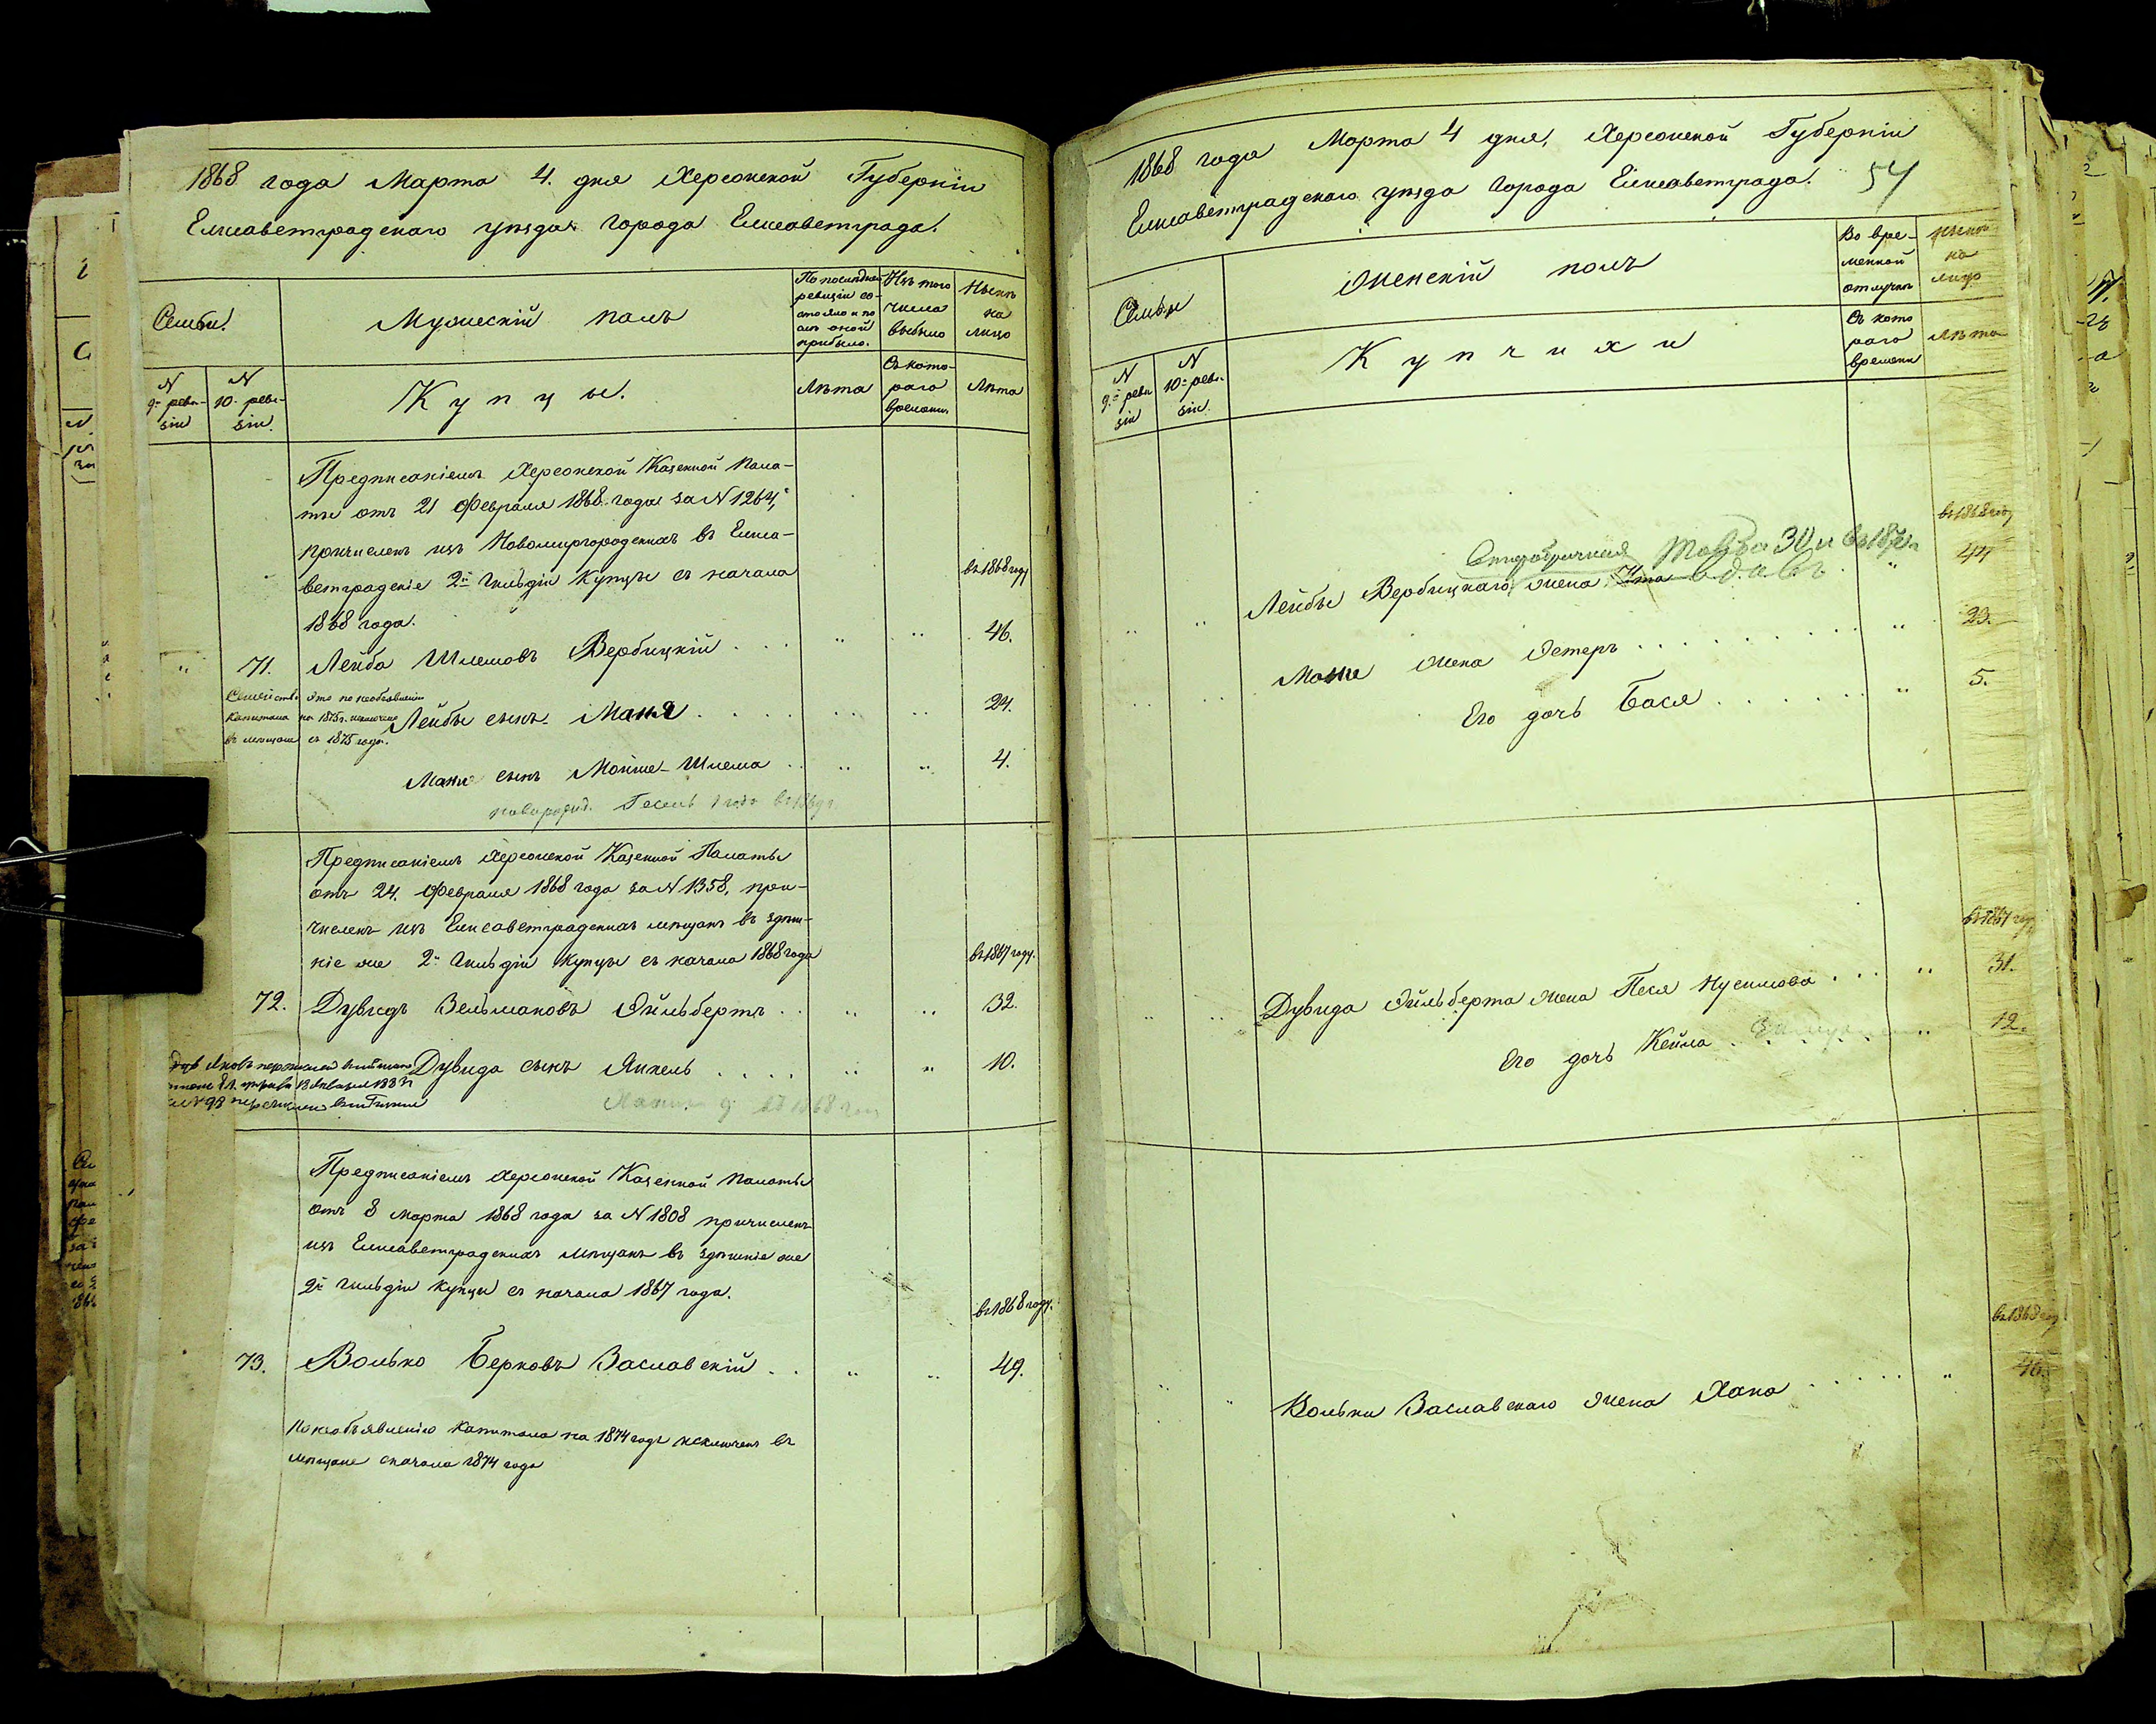 1868 года Марта 4. дня Херсонской Губерніи
Елисаветградскаго уѣзда города Елисаветграда.
Семьи.
Мужескій полъ
По послѣдней
ревизіи со-
стояло и по
слѣ оной
прибыло.
Изъ того
числа
выбыло
Нынѣ
на
лицо
N
9й реви-
зіи
N
10й реви-
зіи.
Купцы.
Лѣта
Съ кото-
раго
времени.
Лѣта
Предписаніемъ Херсонской Казенной Пала-
ты отъ 21 Февраля 1868 года за N 1264,
причисленъ изъ Новомиргородскихъ въ Елиса-
ветградскіе 2й Гильдіи Купцы съ начала
1868 года.
въ 1868 году
71. Лейба Шлемовъ Вербицкій 46.
Семейство это по необъявленію
капитала на 1875 г. исключено
въ мѣщане съ 1875 года.
Лейбы сынъ Маня 24.
Мани сынъ Мойше-Шлема 4.
новорожд. 1 годъ въ 1869 г.
Предписаніемъ Херсонской Казенной Палаты
отъ 24. Февраля 1868 года за N 1358, при-
численъ изъ Елисаветградскихъ мѣщанъ въ здѣш-
ніе же 2й Гильдіи Купцы съ начала 1868 года
въ 1867 году.
72. Дувидъ Зельмановъ Эйльбертъ 32.
Дувида сынъ Янкель 10.
въ 1868 году
Предписаніемъ Херсонской Казенной Палаты
отъ 8 Марта 1868 года за N 1808 причисленъ
изъ Елисаветградскихъ мѣщанъ въ здѣшніе же
2й Гильдіи Купцы съ начала 1867 года.
въ 1868 году.
73. Волько Берковъ Заславскій 49.
По необъявленію капитала на 1874 годъ исключенъ въ
мѣщане сначала 1874 года
1868 года Марта 4 дня, Херсонской Губерніи
Елисаветградскаго уѣзда города Елисаветграда.
54
Семьи
Женскій полъ
Во вре-
менной
отлучкѣ
Нынѣ
на
лицо
N
9й реви
зіи
N
10й реви-
зіи.
Купчихи
Съ кото
раго
времени
Лѣта
въ 1868 году
Лейбы Вербицкаго жена 44
Мани жена Эстеръ 23.
Его дочь Бася 5.
въ 1867 году
Дувида Эйльберта жена Песя Нусимова 31.
Его дочь Кейла 12.
въ 1868 году
Вольки Заславскаго жена Хана 46.